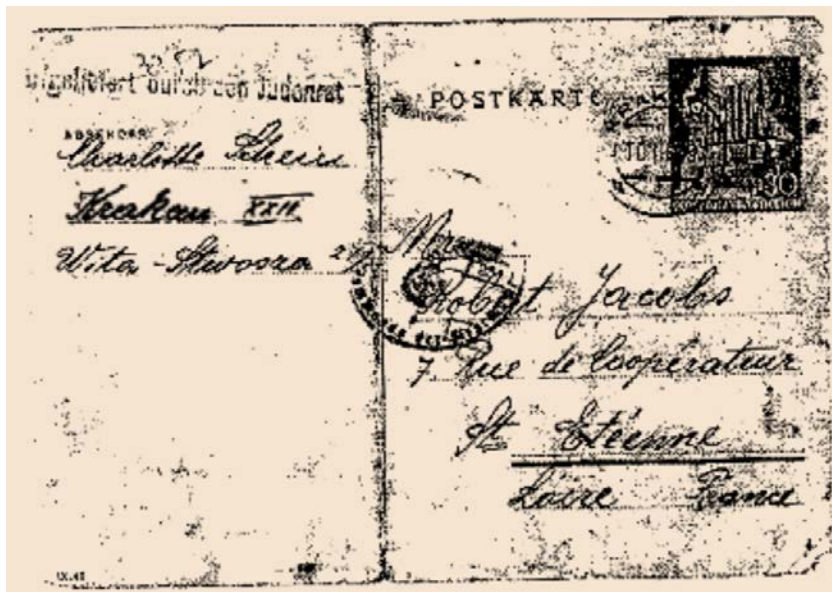 durch den Judenrat
ABSENDER:
Charlotte
Krakau XXII
Wita-Stwosza
POSTKARTE
30
Robert Jacobs
7 Rue de Coopérateur
St Etéenne
Loire France
IX.41